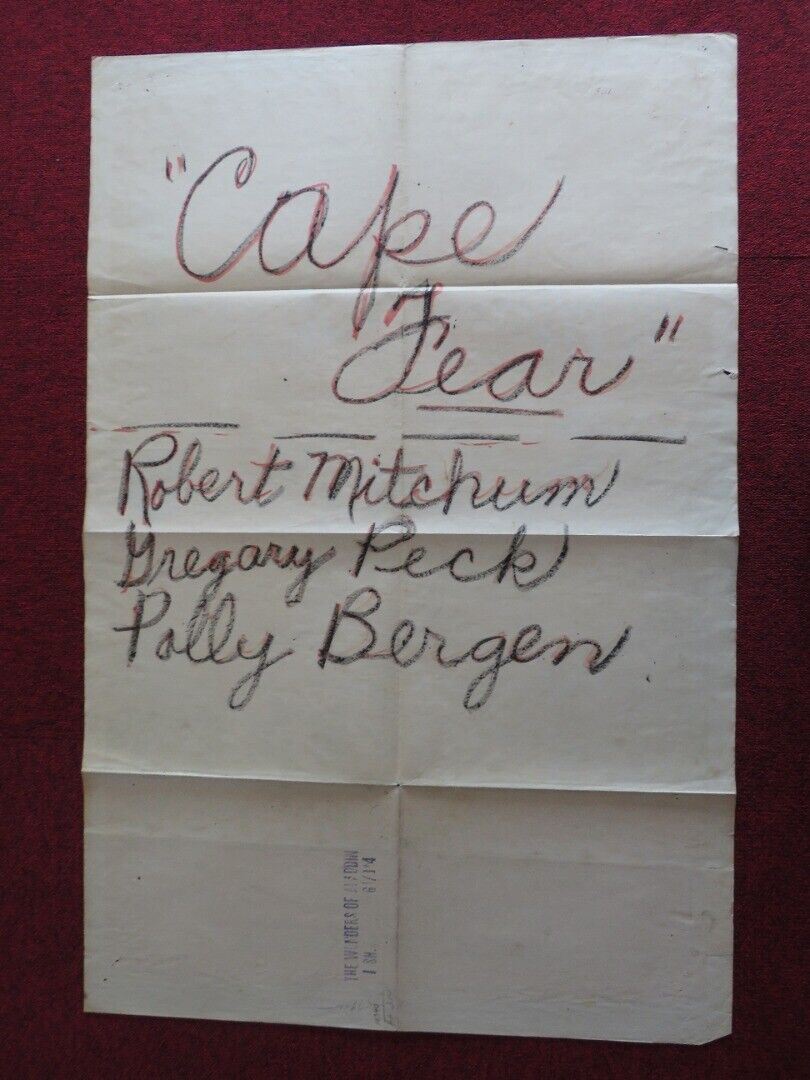 "Cape
Fear"
Robert Mitchum
Gregary Peck
Polly Bergen
THE WONDERS OF ALADDIN
1 SH. 61/194